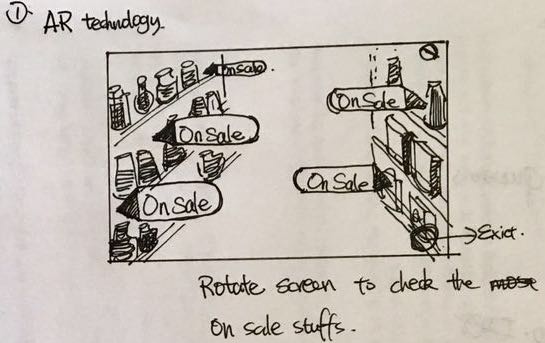 ① AR technology.
On Sale
On Sale
On Sale
On Sale
On Sale
Exict.
Rotate screen to check the
on sale stuffs.